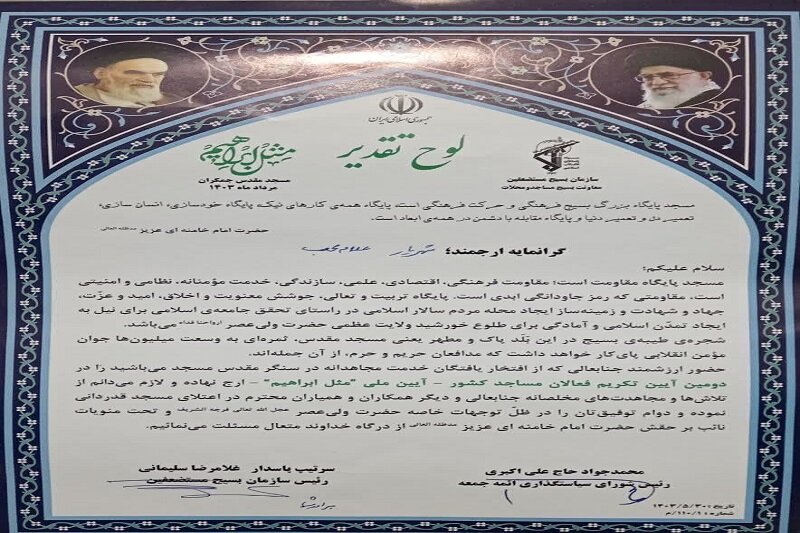 جمهوری اسلامی ایران
لوح تقدیر
مثل ابراهیم
مسجد مقدس جمکران
مرداد ماه ۱۴۰۳
سازمان بسیج مستضعفین
معاونت بسیج مساجد و محلات
مسجد پایگاه بزرگ بسیج فرهنگی و حرکت فرهنگی است، پایگاه همه‌ی کارهای نیک، پایگاه خودسازی، انسان سازی،
تعمیر دل و تعمیر دنیا و پایگاه مقابله با دشمن در همه‌ی ابعاد است.
حضرت امام خامنه ای عزیز مدظله العالی
گرانمایه ارجمند؛ شهریار
سلام علیکم؛
مسجد پایگاه مقاومت است؛ مقاومت فرهنگی، اقتصادی، علمی، سازندگی، خدمت مؤمنانه، نظامی و امنیتی
است، مقاومتی که رمز جاودانگی ابدی است. پایگاه تربیت و تعالی، جوشش معنویت و اخلاق، امید و عزّت،
جهاد و شهادت و زمینه‌ساز ایجاد محله مردم سالار اسلامی در راستای تحقق جامعه‌ی اسلامی برای نیل به
ایجاد تمدّن اسلامی و آمادگی برای طلوع خورشید ولایت عظمی حضرت ولی‌عصر ارواحنا فداه می‌باشد.
شجره‌ی طیبه‌ی بسیج در این بَلَد پاک و مطهر یعنی مسجد مقدس، ثمره‌ای به وسعت میلیون‌ها جوان
مؤمن انقلابی پای‌کار خواهد داشت که مدافعان حریم و حرم، از آن جمله‌اند.
حضور ارزشمند جنابعالی که از افتخار یافتگان خدمت مجاهدانه در سنگر مقدس مسجد می‌باشید را در
دومین آیین تکریم فعالان مساجد کشور - آیین ملی "مثل ابراهیم" - ارج نهاده و لازم می‌دانم از
تلاش‌ها و مجاهدت‌های مخلصانه جنابعالی و دیگر همکاران و همیاران محترم در اعتلای مسجد قدردانی
نموده و دوام توفیق‌تان را در ظلّ توجهات خاصه حضرت ولی‌عصر عجل الله تعالی فرجه الشریف و تحت منویات
نائب بر حقش حضرت امام خامنه ای عزیز مدظله العالی از درگاه خداوند متعال مسئلت می‌نمائیم.
محمدجواد حاج علی اکبری
رئیس شورای سیاستگذاری ائمه جمعه
سرتیپ پاسدار غلامرضا سلیمانی
رئیس سازمان بسیج مستضعفین
تاریخ: ۱۴۰۳/۵/۳۰